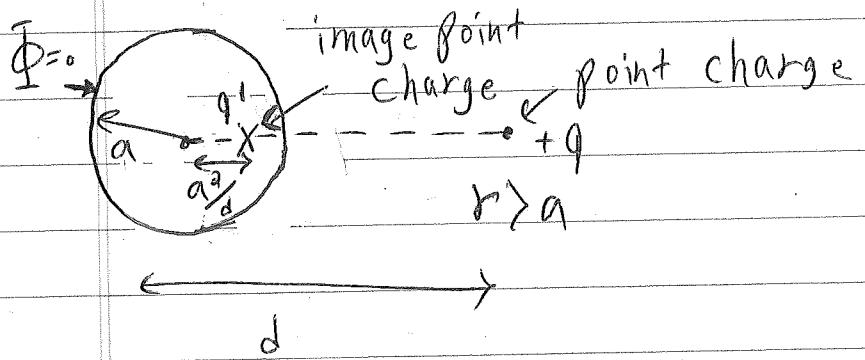 image point
charge
point charge
Φ=0
q'
+q
a
a²/d
r>a
d